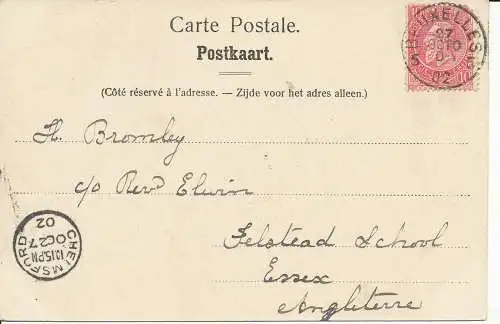 Carte Postale.
Postkaart.
(Côté réservé à l'adresse. — Zijde voor het adres alleen.)
BRUXELLES 5
27
OCTO
02
10
H. Bromley
c/o Revd Elwin
Felstead School
Essex
Angleterre
CHELMSFORD
10.15PM
OC27
02